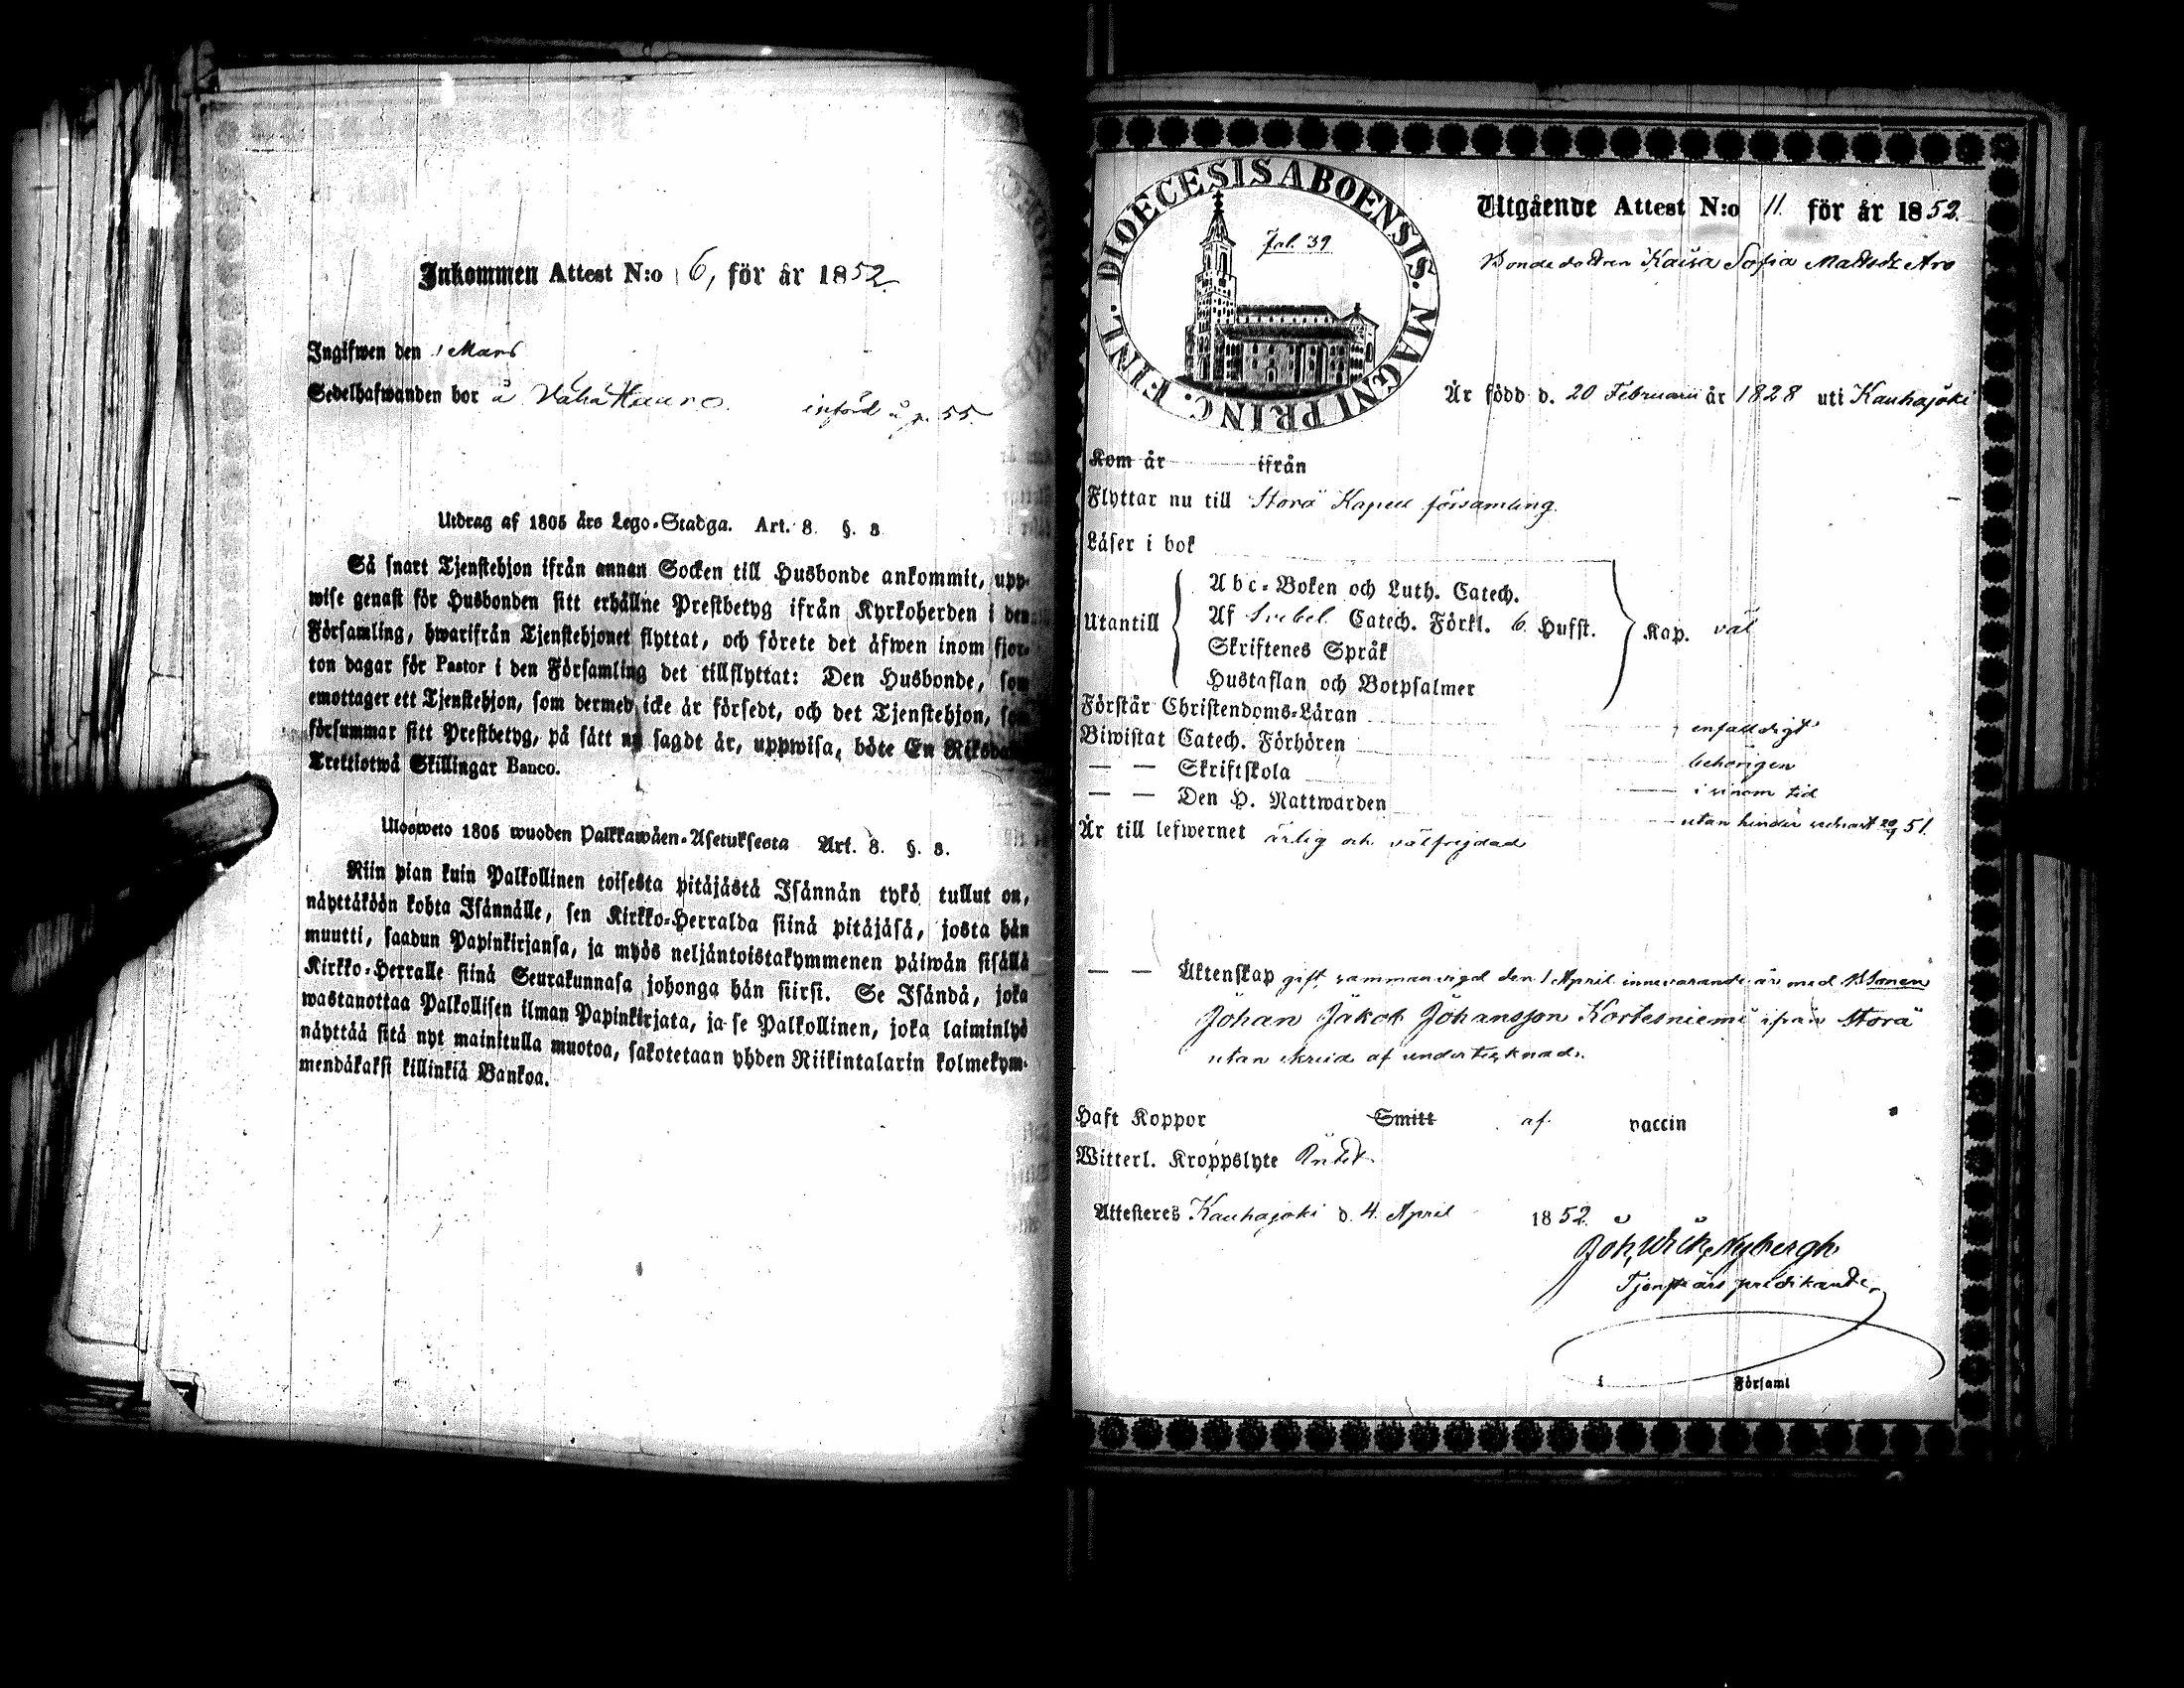 Inkommen Attest N:o 6, för år 1852.
Ingifwen den 1 Mars
Sedelhafwanden bor å Wähä Knuro. införd å p. 55.
Utdrag af 1805 års Lego-Stadga. Art. 8. §. 8
Så snart Tjenstehjon ifrån annan Socken till Husbonde ankommit, upp-
wise genast för Husbonden sitt erhållne Prestbetyg ifrån Kyrkoherden i den
Församling, hwarifrån Tjenstehjonet flyttat, och förete det äfwen inom fjor-
ton dagar för Pastor i den Församling det tillflyttat: Den Husbonde, som
emottager ett Tjenstehjon, som dermed icke är försedt, och det Tjenstehjon, som
försummar sitt Prestbetyg, på sätt nu sagdt är, uppwisa, böte En Riksdaler
Trettiotwå Skillingar Banco.
Uloosweto 1805 wuoden Palkkawäen-Asetuksesta Art. 8. §. 8.
Niin pian kuin Palkollinen toisesta pitäjästä Isännän tykö tullut on,
näyttäköön kohta Isännälle, sen Kirkko-Herralda siinä pitäjäsä, josta hän
muutti, saadun Papinkirjansa, ja myös neljäntoistakymmenen päiwän sisällä
Kirkko-Herralle siinä Seurakunnasa johonga hän siirsi. Se Isändä, joka
wastanottaa Palkollisen ilman Papinkirjata, ja se Palkollinen, joka laiminlyö
näyttää sitä nyt mainitulla muotoa, sakotetaan yhden Riikintalarin kolmekym-
mendäkaksi killinkiä Bankoa.
DIOECESIS ABOENSIS. MAGNI PRINC. FINL.
Fol. 39
Utgående Attest N:o 11. för år 1852.
Bondedottren Kaisa Sofia Mattsdr Aro
Är född d. 20 Februarii år 1828 uti Kauhajoki
Kom år ifrån
Flyttar nu till Storå Kapell församling.
Läser i bok
Utantill
Abc-Boken och Luth. Catech.
Af Svebel. Catech. Förkl. 6 Hufst.
Skriftenes Språk
Hustaflan och Botpsalmer
Kap. väl
Förstår Christendoms-Läran enfaldigt
Biwistat Catech. Förhören behörigen
— — Skriftskola i sinom tid
— — Den H. Nattwarden utan hinder senast 20/9 51.
Är till lefwernet ärlig och välfrejdad
— — Äktenskap gift, sammanvigd den 1 April innevarande år med Bsonen
Johan Jakob Johansson Kortesniemi ifrån Storå
utan skrud af undertecknad.
Haft Koppor Smitt af vaccin
Witterl. Kroppslyte Intet
Attesteres Kauhajoki d. 4 April 1852.
Joh, Wilh, Nybergh
Tjensteårs predikande,
i Församl